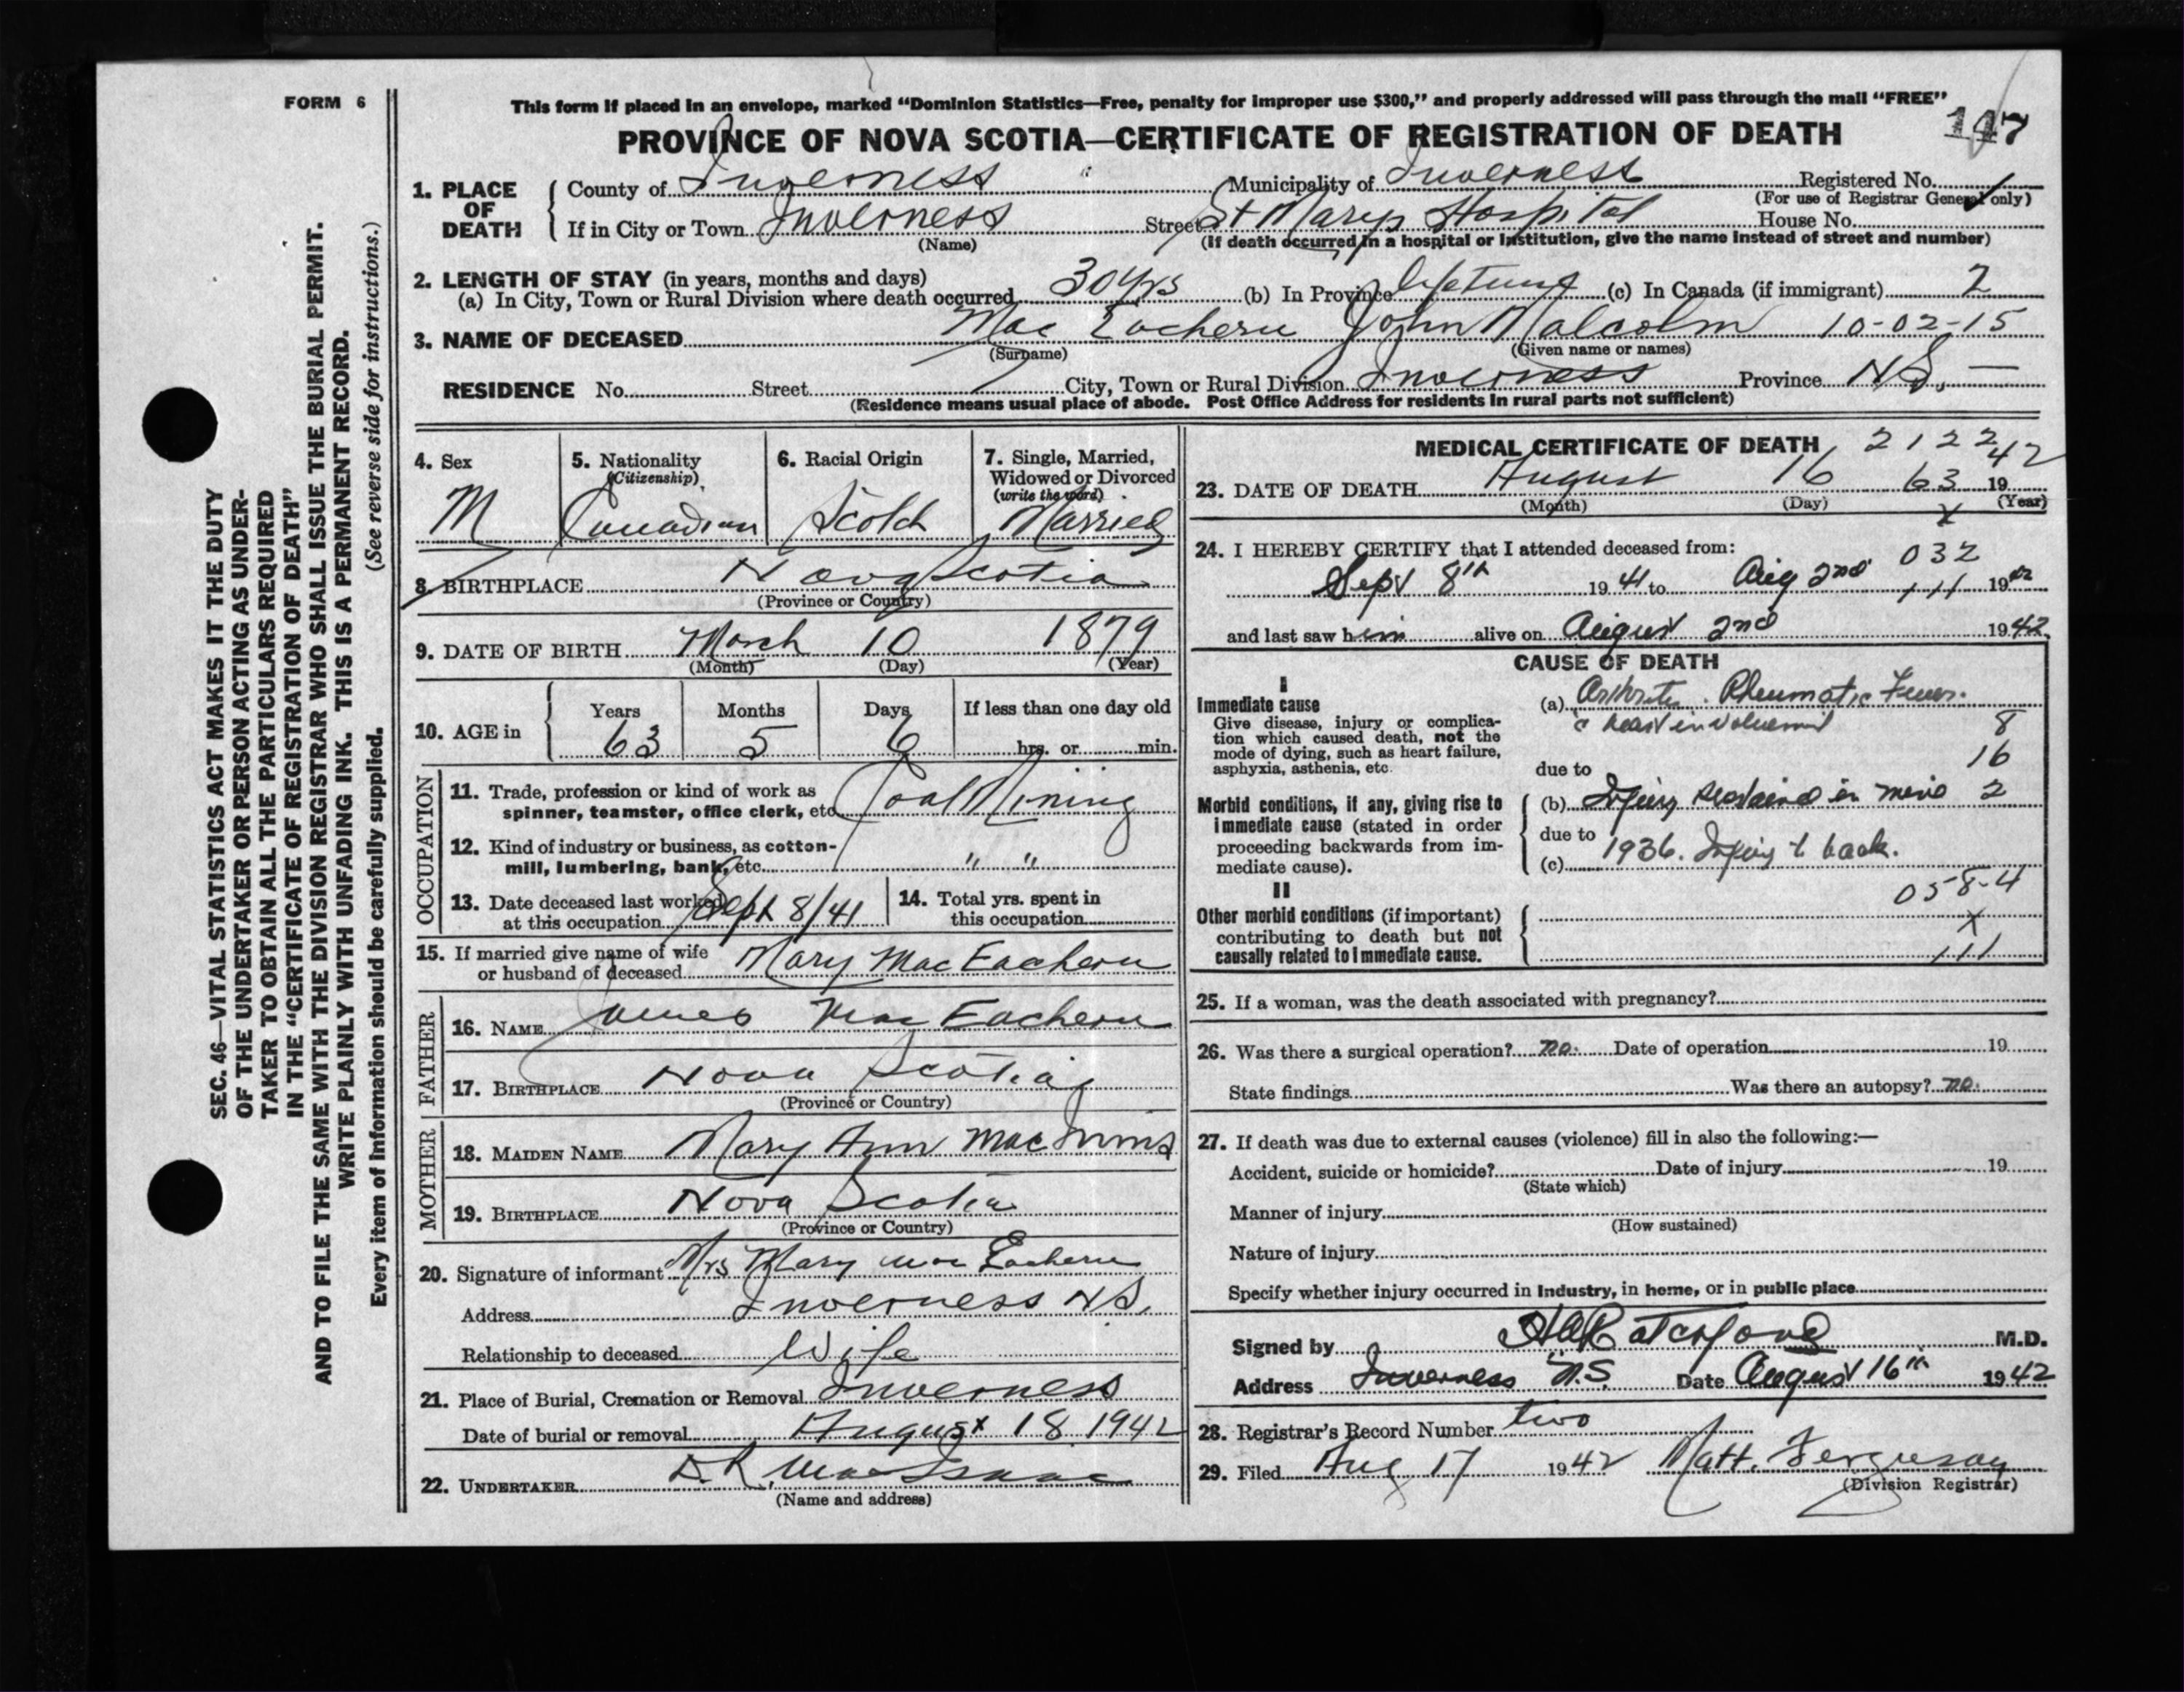 FORM 6
This form if placed in an envelope, marked "Dominion Statistics—Free, penalty for improper use $300," and properly addressed will pass through the mail "FREE"
PROVINCE OF NOVA SCOTIA—CERTIFICATE OF REGISTRATION OF DEATH 147
1. PLACE OF DEATH
County of Inverness Municipality of Inverness Registered No.
(For use of Registrar General only)
If in City or Town Inverness Street St Marys Hospital House No.
(Name) (If death occurred in a hospital or institution, give the name instead of street and number)
2. LENGTH OF STAY (in years, months and days)
(a) In City, Town or Rural Division where death occurred 30 yrs (b) In Province lifetime (c) In Canada (if immigrant) 2
3. NAME OF DECEASED Mac Eachern John Malcolm 10-02-15
(Surname) (Given name or names)
RESIDENCE No. Street City, Town or Rural Division Inverness Province N.S. —
(Residence means usual place of abode. Post Office Address for residents in rural parts not sufficient)
SEC. 46—VITAL STATISTICS ACT MAKES IT THE DUTY
OF THE UNDERTAKER OR PERSON ACTING AS UNDER-
TAKER TO OBTAIN ALL THE PARTICULARS REQUIRED
IN THE "CERTIFICATE OF REGISTRATION OF DEATH"
AND TO FILE THE SAME WITH THE DIVISION REGISTRAR WHO SHALL ISSUE THE BURIAL PERMIT.
WRITE PLAINLY WITH UNFADING INK. THIS IS A PERMANENT RECORD.
Every item of information should be carefully supplied. (See reverse side for instructions.)
4. Sex 5. Nationality (Citizenship) 6. Racial Origin 7. Single, Married, Widowed or Divorced (write the word)
M Canadian Scotch Married
8. BIRTHPLACE Nova Scotia
(Province or Country)
9. DATE OF BIRTH March 10 1879
(Month) (Day) (Year)
10. AGE in Years Months Days If less than one day old
63 5 6 hrs. or min.
OCCUPATION
11. Trade, profession or kind of work as
spinner, teamster, office clerk, etc. Coal Mining
12. Kind of industry or business, as cotton-
mill, lumbering, bank, etc. " "
13. Date deceased last worked
at this occupation Sept 8/41
14. Total yrs. spent in
this occupation
15. If married give name of wife
or husband of deceased Mary MacEachern
FATHER
16. NAME James MacEachern
17. BIRTHPLACE Nova Scotia
(Province or Country)
MOTHER
18. MAIDEN NAME Mary Ann MacInnis
19. BIRTHPLACE Nova Scotia
(Province or Country)
20. Signature of informant Mrs Mary MacEachern
Address Inverness N.S.
Relationship to deceased Wife
21. Place of Burial, Cremation or Removal Inverness
Date of burial or removal August 18 1942
22. UNDERTAKER D.R. MacIsaac
(Name and address)
MEDICAL CERTIFICATE OF DEATH 2122
23. DATE OF DEATH August 16 63 19 42
(Month) (Day) (Year)
X
24. I HEREBY CERTIFY that I attended deceased from: 032
Sept 8th 19 41 to Aug 2nd 111 19 42
and last saw him alive on August 2nd 19 42
CAUSE OF DEATH
I
Immediate cause
Give disease, injury or complica-
tion which caused death, not the
mode of dying, such as heart failure,
asphyxia, asthenia, etc.
(a) Arthritis. Rheumatic Fever.
c̄ heart involvement 8
16
due to
Morbid conditions, if any, giving rise to
immediate cause (stated in order
proceeding backwards from im-
mediate cause).
(b) Injury sustained in mine 2
due to
(c) 1936. Injury to back.
058-4
II
Other morbid conditions (if important)
contributing to death but not
causally related to immediate cause.
X
111
25. If a woman, was the death associated with pregnancy?
26. Was there a surgical operation? no. Date of operation 19
State findings Was there an autopsy? no.
27. If death was due to external causes (violence) fill in also the following:—
Accident, suicide or homicide? Date of injury 19
(State which)
Manner of injury
(How sustained)
Nature of injury
Specify whether injury occurred in industry, in home, or in public place
Signed by M.D.
Address Inverness N.S. Date August 16th 1942
28. Registrar's Record Number two
29. Filed Aug 17 1942 Matt. Ferguson
(Division Registrar)